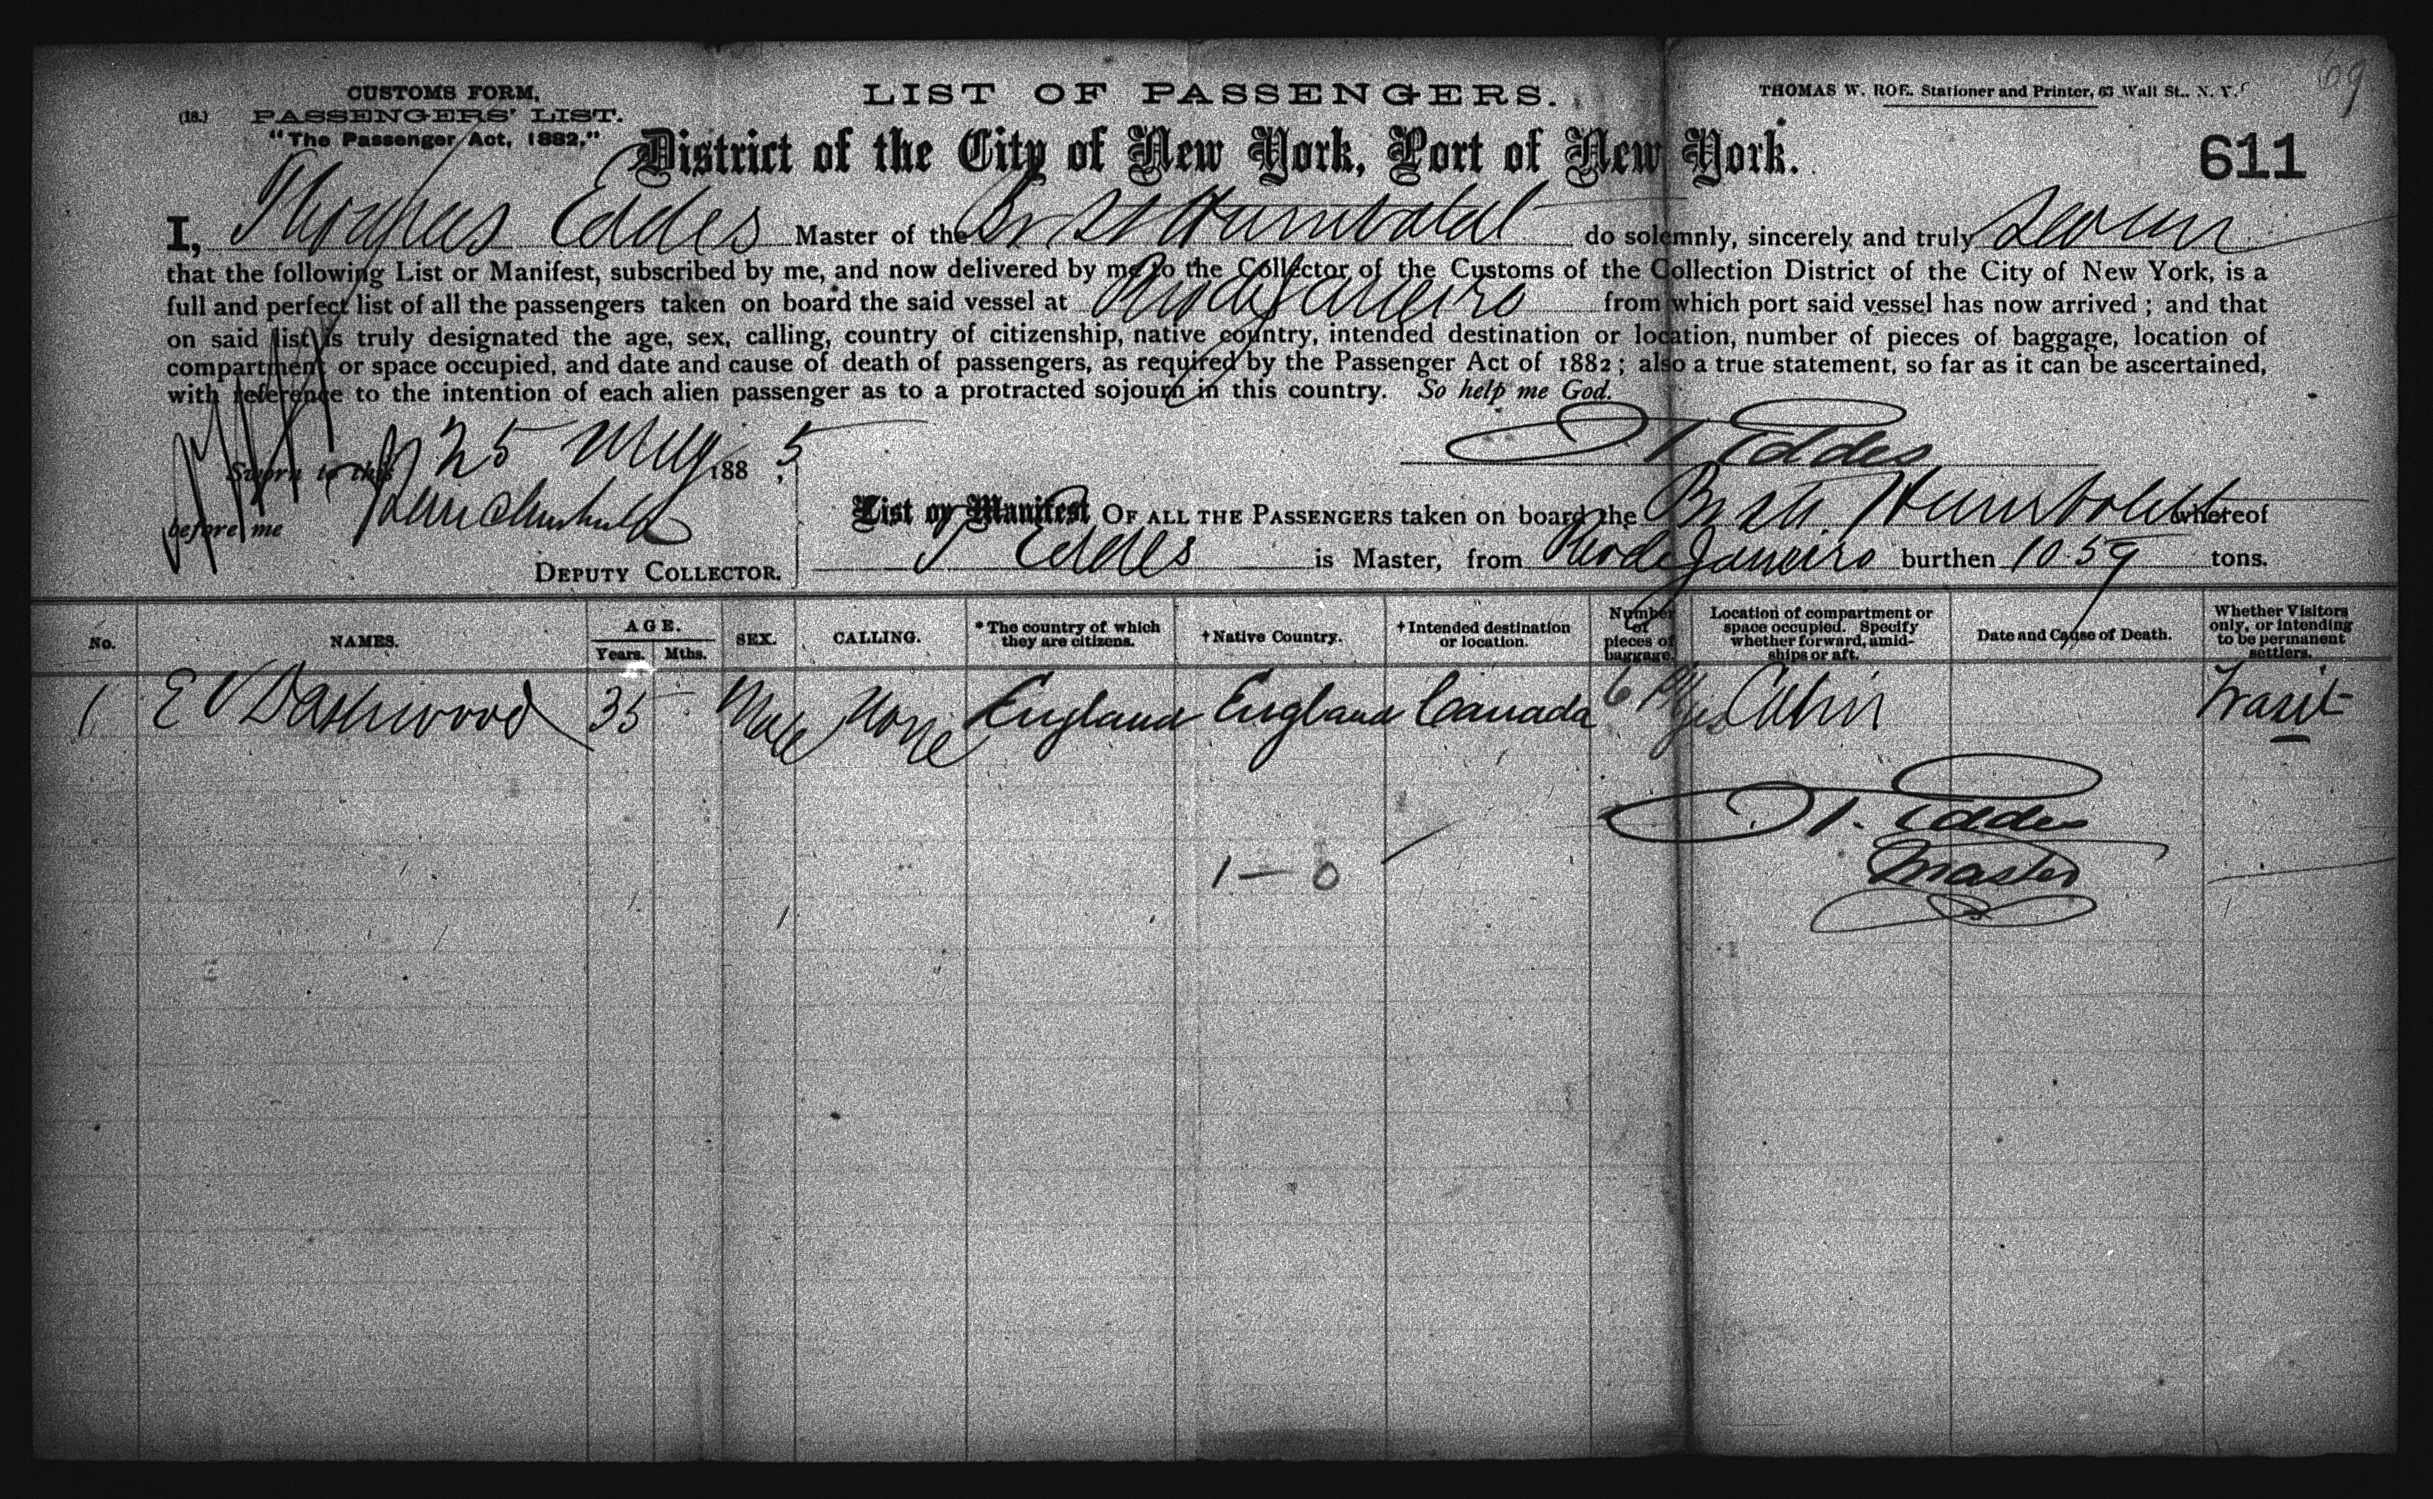 CUSTOMS FORM,
(18.) PASSENGERS' LIST.
"The Passenger Act, 1882,"
LIST OF PASSENGERS.
THOMAS W. ROE. Stationer and Printer, 63 Wall St., N. Y.
69
District of the City of New York, Port of New York.
611
I, Thomas Eddes Master of the Br SS Humboldt do solemnly, sincerely and truly swear
that the following List or Manifest, subscribed by me, and now delivered by me to the Collector of the Customs of the Collection District of the City of New York, is a
full and perfect list of all the passengers taken on board the said vessel at Rio de Janeiro from which port said vessel has now arrived; and that
on said list is truly designated the age, sex, calling, country of citizenship, native country, intended destination or location, number of pieces of baggage, location of
compartment or space occupied, and date and cause of death of passengers, as required by the Passenger Act of 1882; also a true statement, so far as it can be ascertained,
with reference to the intention of each alien passenger as to a protracted sojourn in this country. So help me God.
Sworn to this 25 May 1885
T. Eddes
before me
DEPUTY COLLECTOR.
List or Manifest OF ALL THE PASSENGERS taken on board the Br SS Humboldt whereof
T Eddes is Master, from Rio de Janeiro burthen 1059 tons.
No. NAMES. AGE. Years. Mths. SEX. CALLING. *The country of which they are citizens. †Native Country. †Intended destination or location. Number of pieces of baggage. Location of compartment or space occupied. Specify whether forward, amidships or aft. Date and Cause of Death. Whether Visitors only, or intending to be permanent settlers.
1 E V Dashwood 35 Male None England England Canada 6 Pkges Cabin Transit
T. Eddes
Master
1 — 0